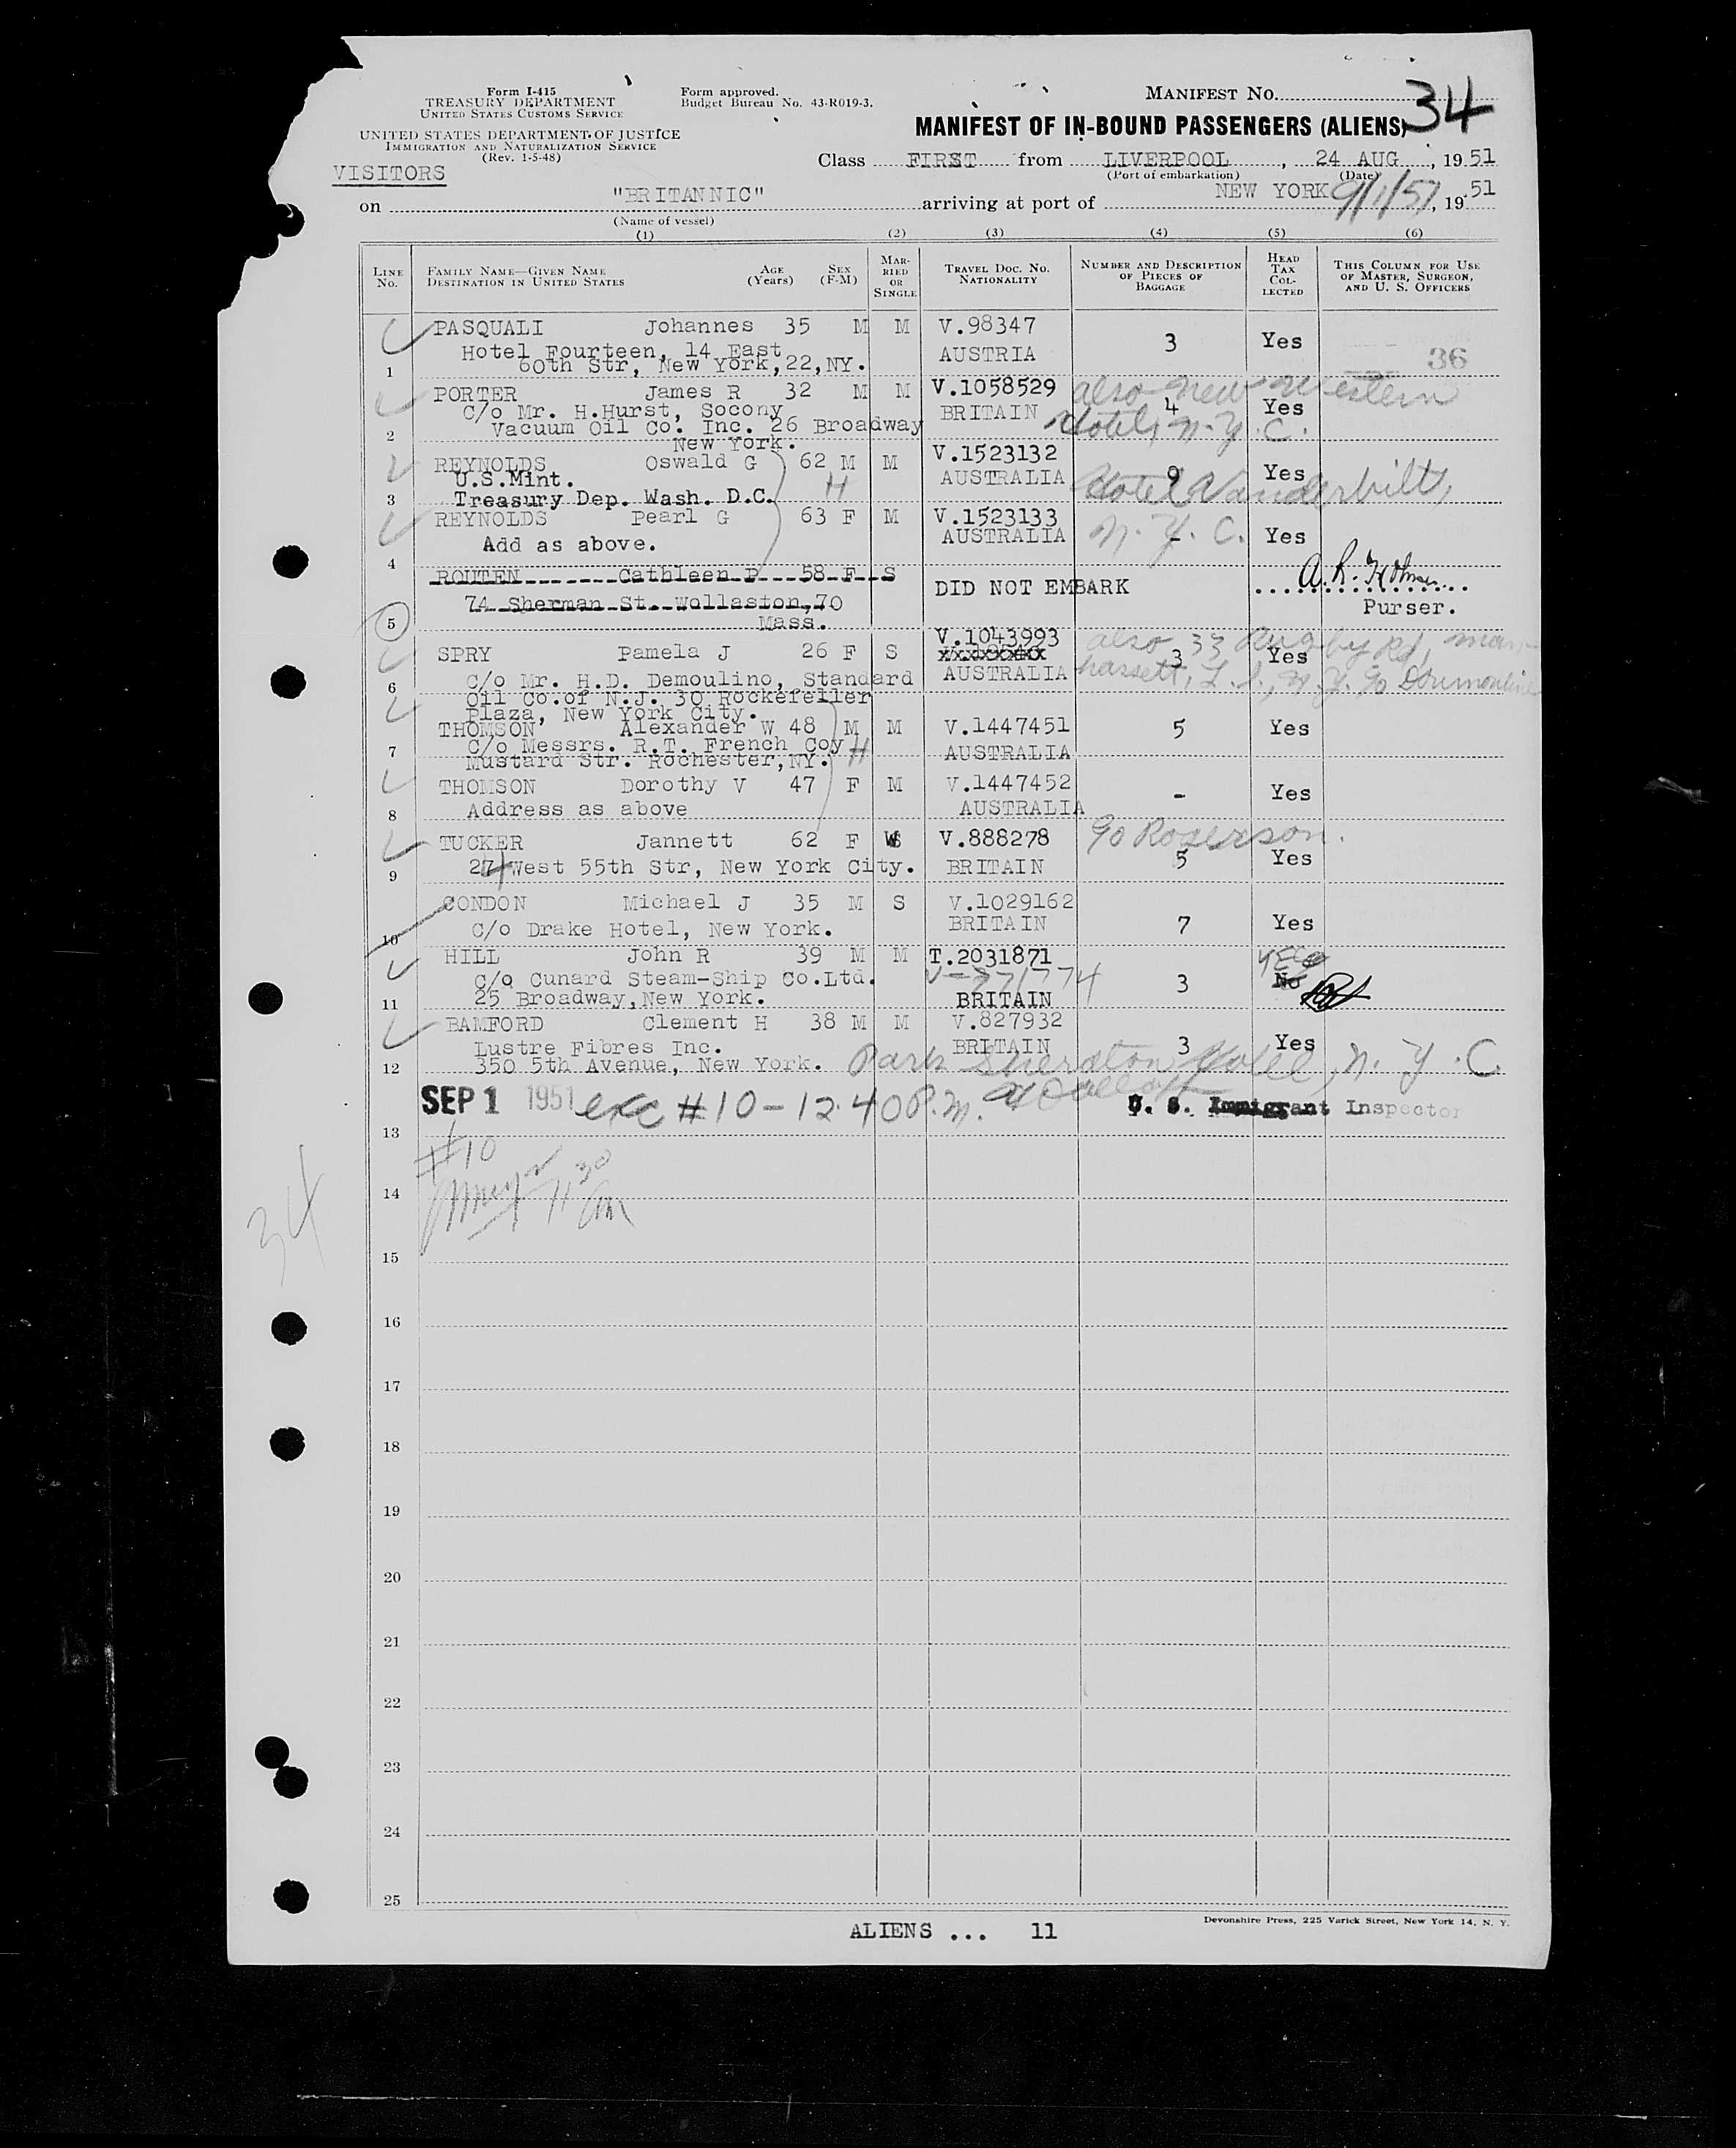 Form I-415
TREASURY DEPARTMENT
UNITED STATES CUSTOMS SERVICE
UNITED STATES DEPARTMENT OF JUSTICE
IMMIGRATION AND NATURALIZATION SERVICE
(Rev. 1-5-48)
Form approved.
Budget Bureau No. 43-R019-3.
MANIFEST NO. 34
MANIFEST OF IN-BOUND PASSENGERS (ALIENS)
Class FIRST from LIVERPOOL, 24 AUG, 1951
(Port of embarkation) (Date)
VISITORS
on "BRITANNIC" arriving at port of NEW YORK 9/1/51, 19 51
(Name of vessel)
(1) (2) (3) (4) (5) (6)
LINE NO.
FAMILY NAME—GIVEN NAME
DESTINATION IN UNITED STATES
AGE (Years)
SEX (F-M)
MARRIED OR SINGLE
TRAVEL DOC. NO. NATIONALITY
NUMBER AND DESCRIPTION OF PIECES OF BAGGAGE
HEAD TAX COLLECTED
THIS COLUMN FOR USE OF MASTER, SURGEON, AND U. S. OFFICERS
PASQUALI Johannes 35 M M V.98347
Hotel Fourteen, 14 East AUSTRIA 3 Yes
1 60th Str, New York,22,NY. 36
PORTER James R 32 M M V.1058529 also New Western
C/o Mr. H.Hurst, Socony BRITAIN 4 Yes
2 Vacuum Oil Co. Inc. 26 Broadway Hotel, N.Y.C.
New York.
REYNOLDS Oswald G 62 M M V.1523132
U.S.Mint. H AUSTRALIA 9 Yes
3 Treasury Dep. Wash. D.C. Hotel Vanderbilt,
REYNOLDS Pearl G 63 F M V.1523133 N.Y.C.
4 Add as above. AUSTRALIA - Yes
ROUTEN Cathleen P 58 F S DID NOT EMBARK
74 Sherman St. Wollaston,70 Purser.
5 Mass.
SPRY Pamela J 26 F S V.1043993 3 Yes
6 C/o Mr. H.D. Demoulino, Standard AUSTRALIA
also 33 Rugby Rd, Manhassett, L.I., N.Y.
Oil Co.of N.J. 30 Rockefeller
Plaza, New York City.
THOMSON Alexander W 48 M M V.1447451 5 Yes
7 C/o Messrs. R.T. French Coy H AUSTRALIA
Mustard Str. Rochester,NY.
THOMSON Dorothy V 47 F M V.1447452 - Yes
8 Address as above AUSTRALIA
TUCKER Jannett 62 F S V.888278 c/o Rogerson.
9 24 West 55th Str, New York City. BRITAIN 5 Yes
CONDON Michael J 35 M S V.1029162
10 C/o Drake Hotel, New York. BRITAIN 7 Yes
HILL John R 39 M M T.2031871 YES
C/o Cunard Steam-Ship Co.Ltd. V-771774 3 No
11 25 Broadway,New York. BRITAIN
BAMFORD Clement H 38 M M V.827932
Lustre Fibres Inc. BRITAIN 3 Yes
12 350 5th Avenue, New York. Park Sheraton Hotel, N.Y.C.
SEP 1 1951 exc #10 - 12.40 P.m. U. S. Immigrant Inspector
13
#10
14
11 30 am
34
15
16
17
18
19
20
21
22
23
24
25
ALIENS ... 11
Devonshire Press, 225 Varick Street, New York 14, N. Y.